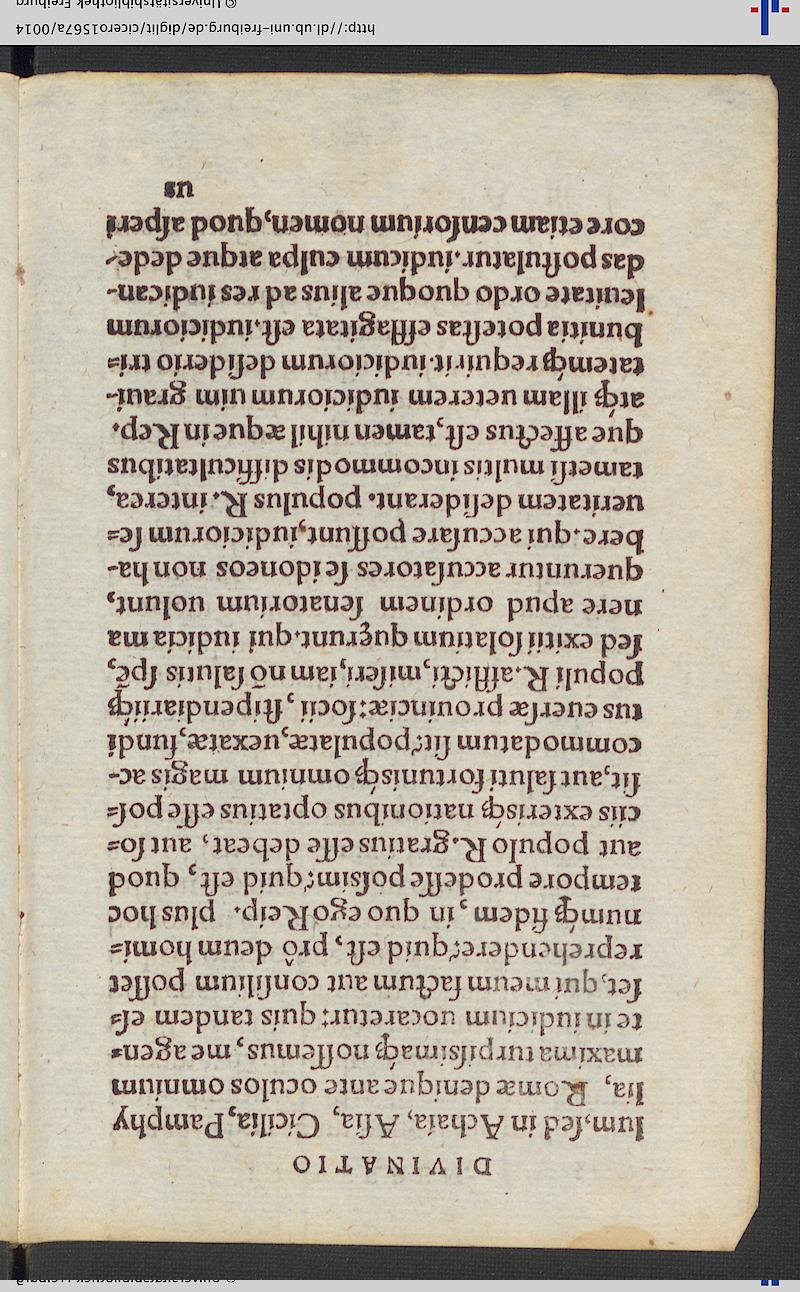 DIVINATIO
lum,ſed in Achaia, Aſia, Cicilia, Pamphy
lia, Romæ denique ante oculos omnium
maxima turpiſsimaq́ꝫ noſſemus, me agen=
te in iudicium uocaretur: quis tandem eſ=
ſet, qui meum factum aut conſilium poſſet
reprehendere? quid eſt, prô deum homi=
numq́ꝫ fidem, in quo ego Reip. plus hoc
tempore prodeſſe poſsim? quid eſt, quod
aut populo R. gratius eſſe debeat, aut ſo=
ciis exterisq́ꝫ nationibus optatius eſſe poſ=
ſit, aut ſaluti fortunisq́ꝫ omnium magis ac-
commodatum ſit? populatæ, uexatæ, fundi
tus euerſæ prouinciæ: ſocii, ſtipendiariiq́ꝫ
populi R. afflicti, miſeri, iam nō ſalutis ſpē,
ſed exitii ſolatium quęrunt. qui iudicia ma
nere apud ordinem ſenatorium uolunt,
queruntur accuſatores ſe idoneos non ha-
bere. qui accuſare poſſunt, iudiciorum ſe=
ueritatem deſiderant. populus R. interea,
tametſi multis incommodis difficultatibus
que affectus eſt, tamen nihil æque in Rep.
atq́ꝫ illam ueterem iudiciorum uim graui-
tatemq́ꝫ requirit. iudiciorum deſiderio tri=
bunitia poteſtas efflagitata eſt. iudiciorum
leuitate ordo quoque alius ad res iudican-
das poſtulatur. iudicum culpa atque dede-
core etiam cenſorium nomen, quod aſperi
us
http://dl.ub.uni-freiburg.de/diglit/cicero1567a/0014
© Universitätsbibliothek Freiburg